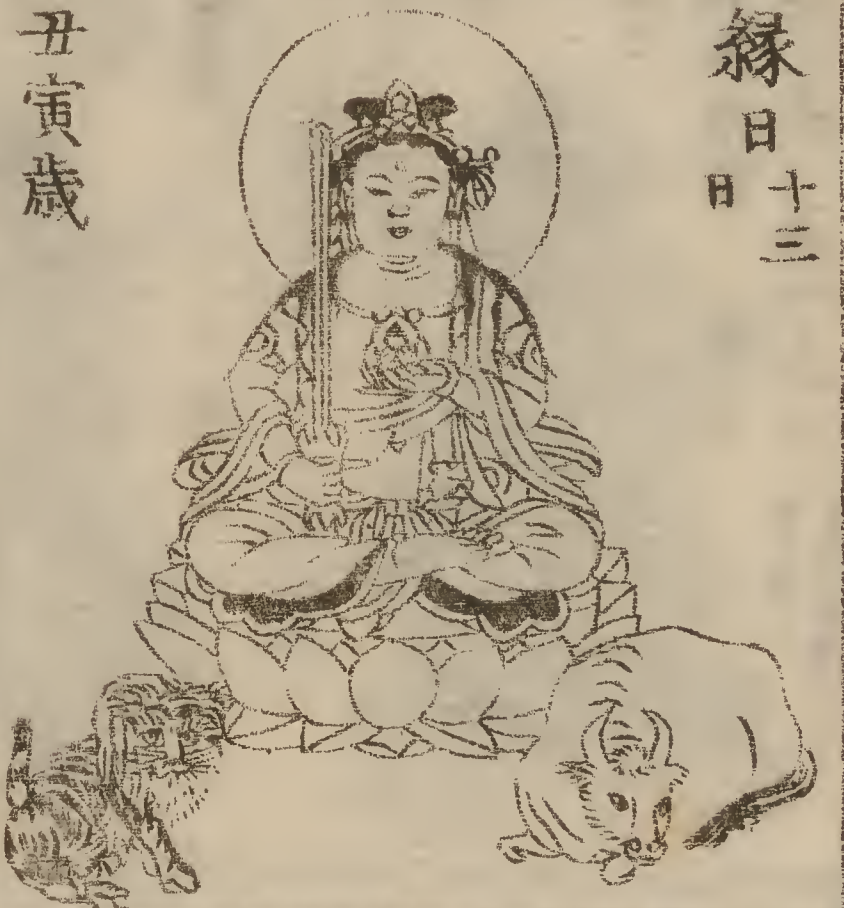 縁日
十三
日
丑寅歳